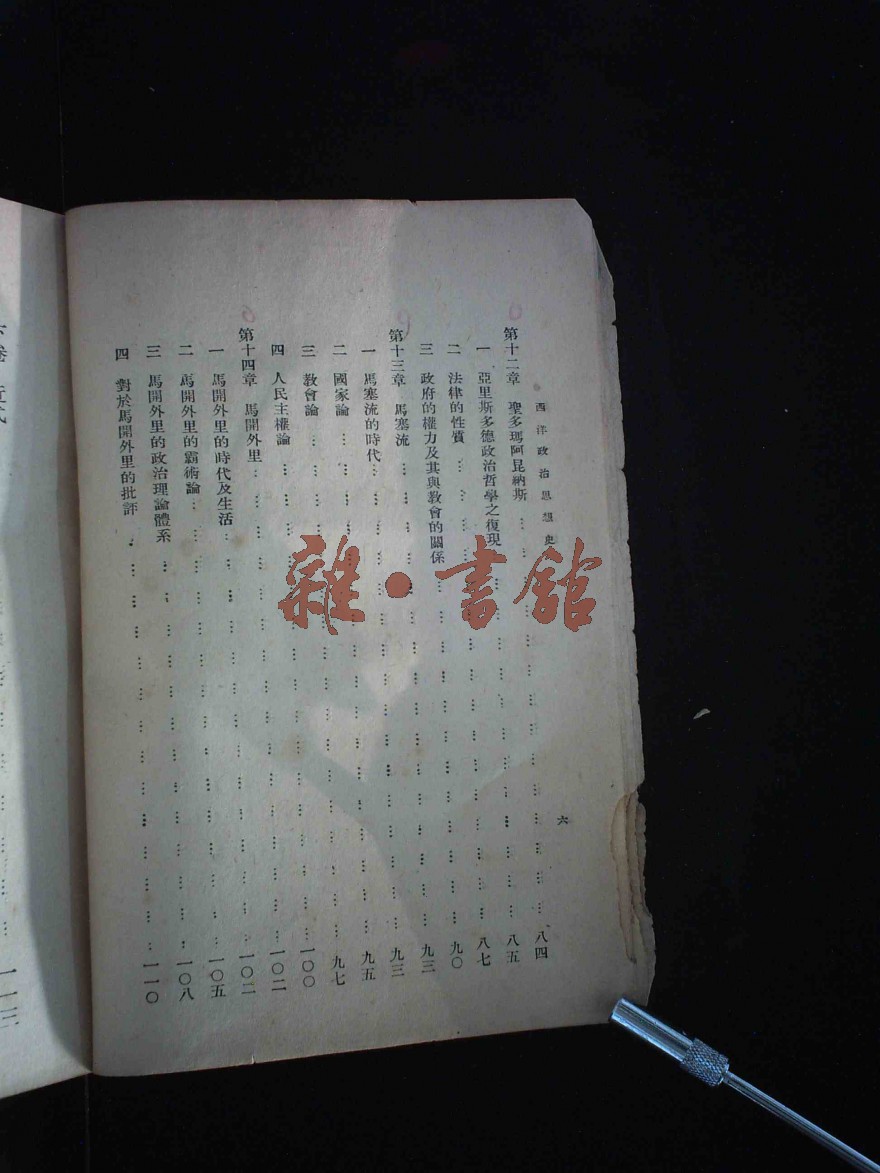 西洋政治思想史
六
第十二章 聖多瑪阿昆納斯……八四
一 亞里斯多德政治哲學之復現……八五
二 法律的性質……八七
三 政府的權力及其與教會的關係……九〇
第十三章 馬塞流……九三
一 馬塞流的時代……九三
二 國家論……九五
三 教會論……九七
四 人民主權論……一〇〇
第十四章 馬開外里……一〇二
一 馬開外里的時代及生活……一〇二
二 馬開外里的霸術論……一〇五
三 馬開外里的政治理論體系……一〇八
四 對於馬開外里的批評……一一〇
一一三
雜·書館